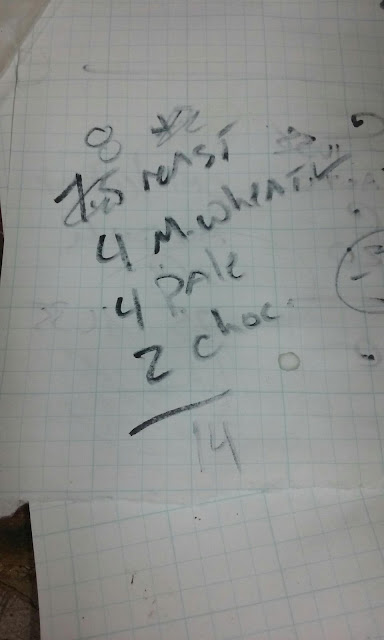 8
roast
4 M. wheat ✓
4 pale
2 choc.
14